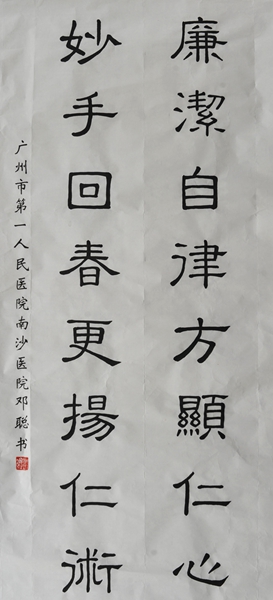 廉潔自律方顯仁心
妙手回春更揚仁術
广州市第一人民医院南沙医院邓聪书